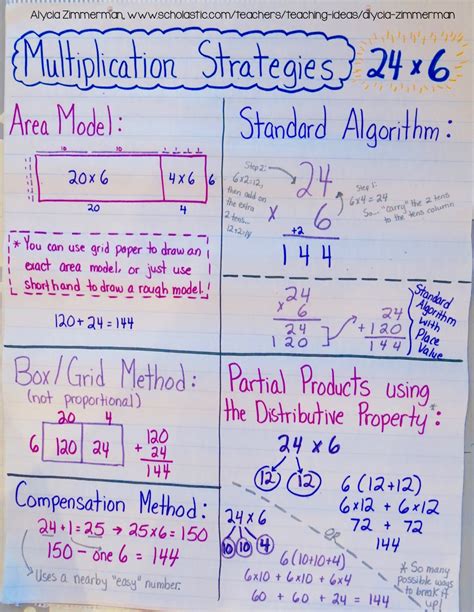 Alycia Zimmerman, www.scholastic.com/teachers/teaching-ideas/alycia-zimmerman
Multiplication Strategies
24 x 6
Area Model:
10 10 1 1 1 1
20 x 6
4 x 6
6
20
4
* You can use grid paper to draw an
exact area model, or just use
shorthand to draw a rough model.
120 + 24 = 144
Standard Algorithm:
Step 2:
6x2=12,
then add on
the extra
2 tens...
12+2=14
24
x 6
+2
144
Step 1:
6x4=24
So... "carry" the 2 tens
to the tens column
24
x 6
24
120
24
+ 120
144
Standard
Algorithm
with
Place
Value
Box/Grid Method:
(not proportional)
20 4
6 120 24
120
+ 24
144
Compensation Method:
24 + 1 = 25 → 25 x 6 = 150
150 - one 6 = 144
Uses a nearby "easy" number.
Partial Products using
the Distributive Property*:
24 x 6
12 12
6 (12+12)
6 x 12 + 6 x 12
72 + 72
144
OR
24 x 6
10 10 4
6 (10+10+4)
6x10 + 6x10 + 6x4
60 + 60 + 24 = 144
* So many
possible ways
to break it
up!